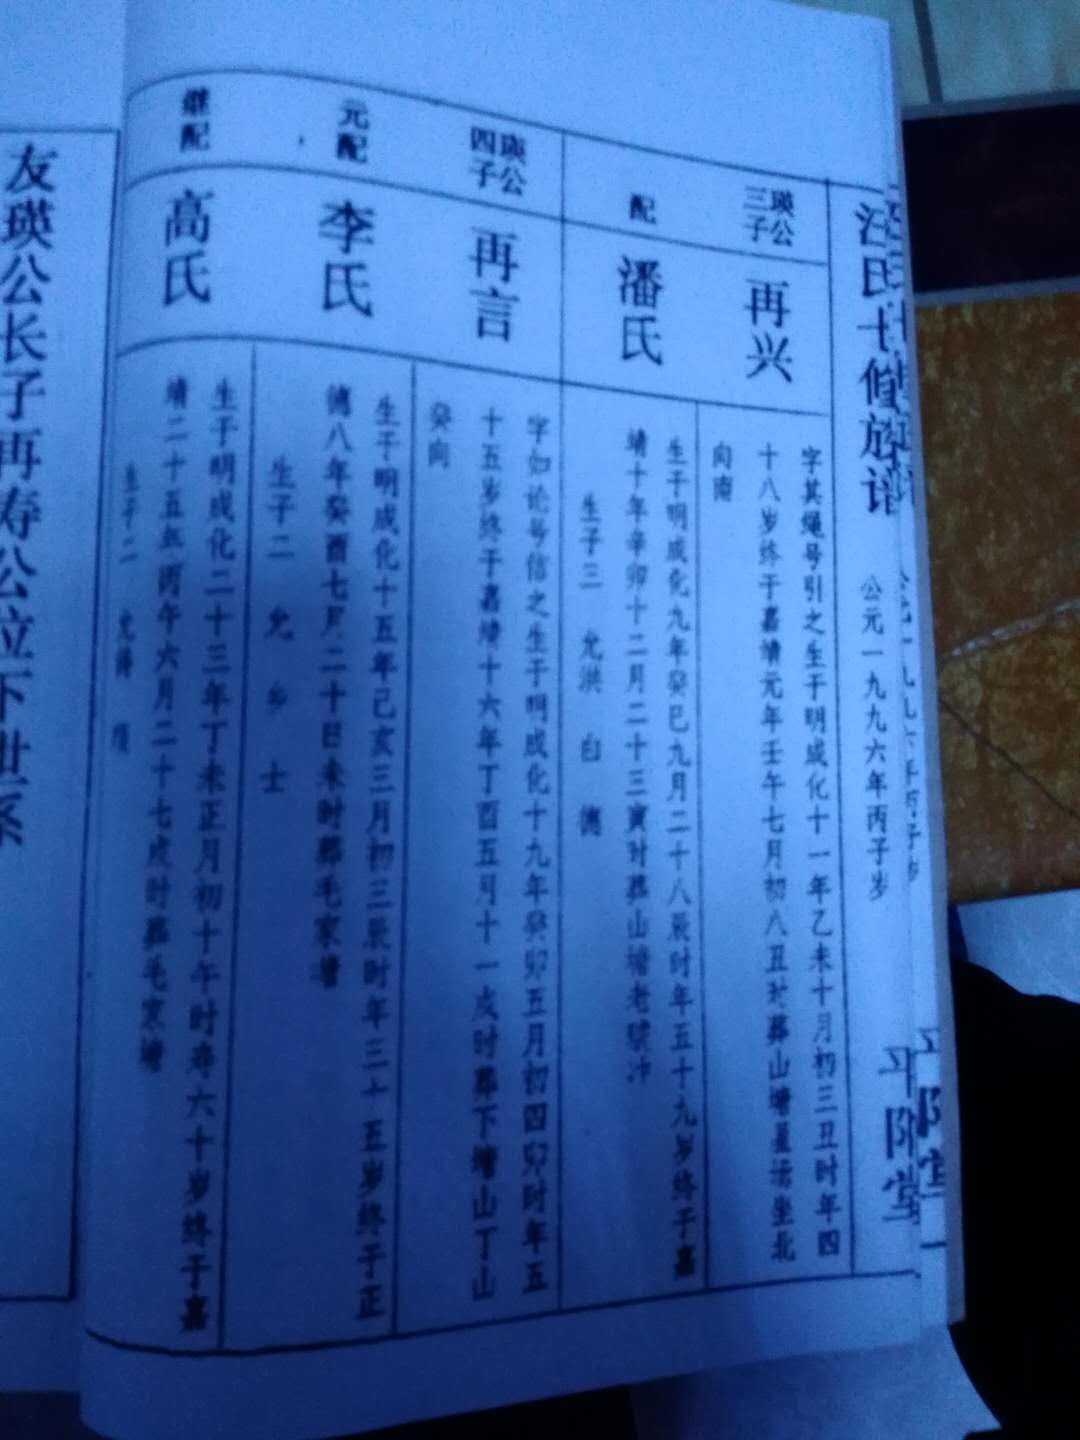 汪氏十修族谱 公元一九九六年丙子岁 习阶堂
瑛公
三子
再兴
字其绳号引之生于明成化十一年乙未十月初三丑时年四
十八岁终于嘉靖元年壬午七月初八丑时葬山塘星塔坐北
向南
配
潘氏
生于明成化九年癸巳九月二十八辰时年五十九岁终于嘉
靖十年辛卯十二月二十三寅时葬山塘老冲
生子三 允洪 白 德
瑛公
四子
再言
字如论号信之生于明成化十九年癸卯五月初四卯时年五
十五岁终于嘉靖十六年丁酉五月十一戌时葬下塘山丁山
癸向
元配
李氏
生于明成化十五年己亥三月初三辰时年三十五岁终于正
德八年癸酉七月二十日未时葬毛家塘
生子二 允 乡 士
继配
高氏
生于明成化二十三年丁未正月初十午时寿六十岁终于嘉
靖二十五年丙午六月二十七戌时葬毛家塘
生子二 允
友瑛公长子再寿公位下世系